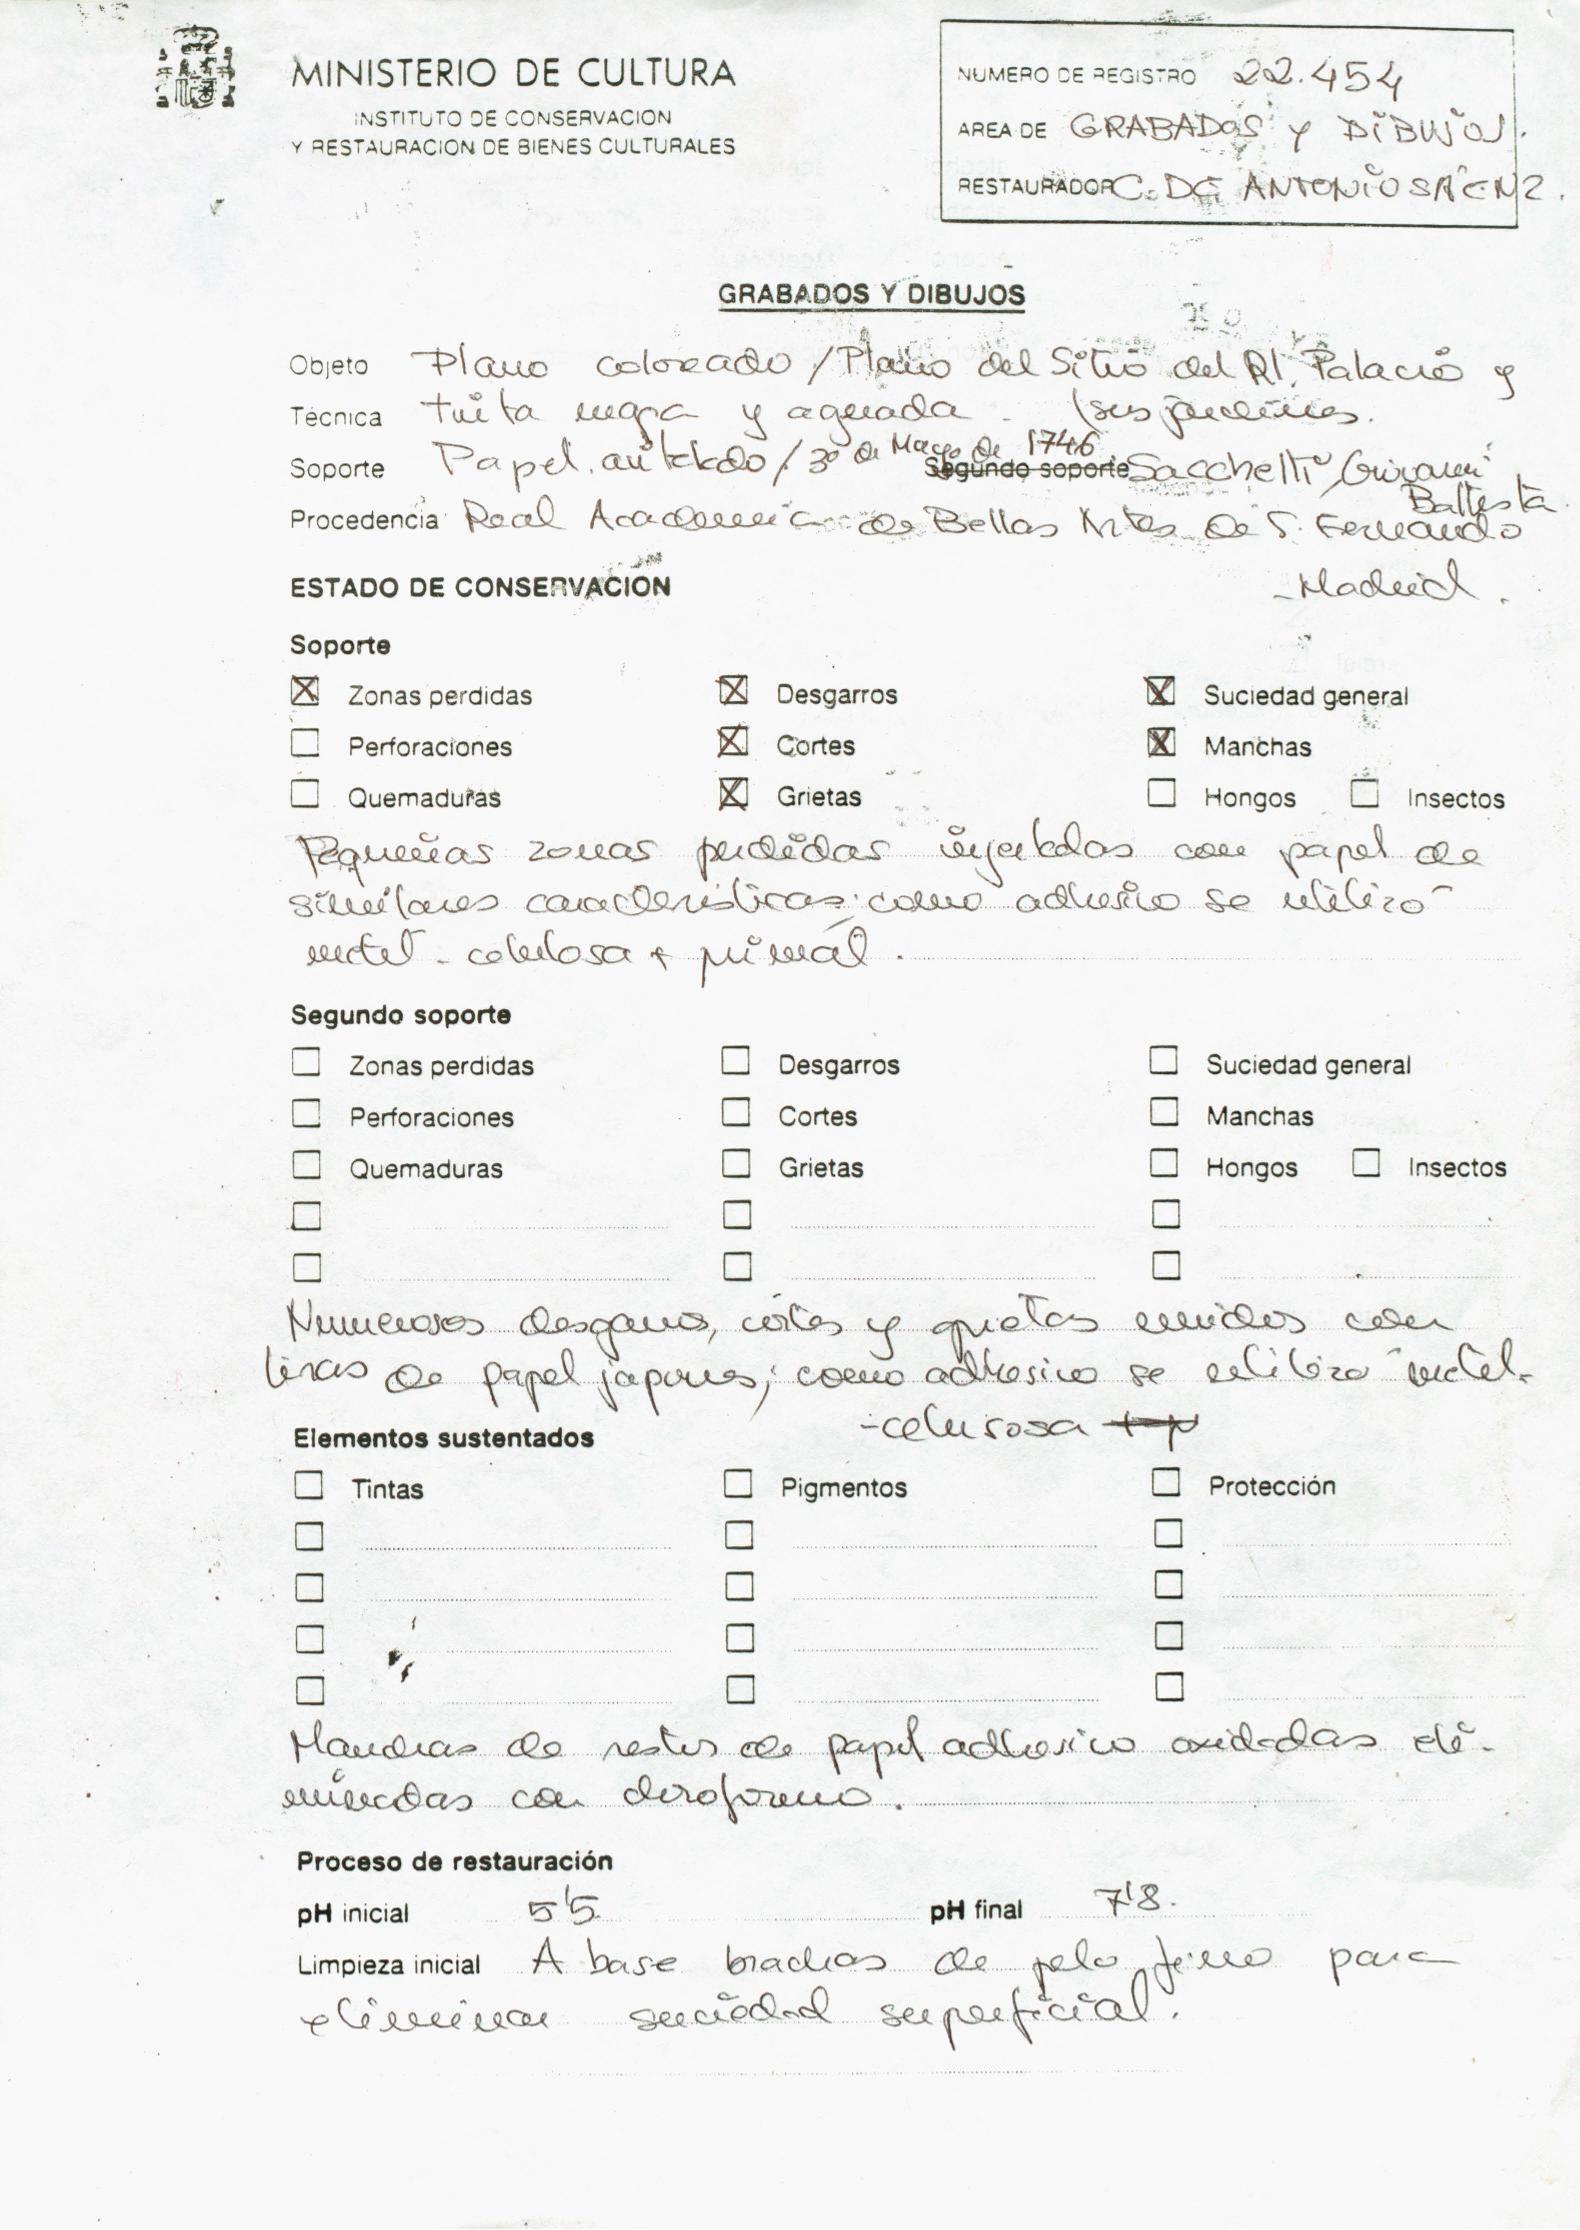 MINISTERIO DE CULTURA
INSTITUTO DE CONSERVACION
Y RESTAURACION DE BIENES CULTURALES
NUMERO DE REGISTRO 22.454
AREA DE GRABADOS Y DIBUJOS.
RESTAURADOR C. DE ANTONIO SAENZ.
GRABADOS Y DIBUJOS
Objeto Plano coloreado / Plano del Sitio del Rl. Palacio y
Técnica tinta negra y aguada - (sus jardines.
Soporte Papel entelado / 30 de Mayo de 1746 Segundo soporte Sacchetti, Giovanni
Battista.
Procedencia Real Academia de Bellas Artes de S. Fernando
- Madrid.
ESTADO DE CONSERVACION
Soporte
☒ Zonas perdidas ☒ Desgarros ☒ Suciedad general
☐ Perforaciones ☒ Cortes ☒ Manchas
☐ Quemaduras ☒ Grietas ☐ Hongos ☐ Insectos
Pequeñas zonas perdidas injertadas con papel de
similares características; como adhesivo se utilizó
metil-celulosa + primal.
Segundo soporte
☐ Zonas perdidas ☐ Desgarros ☐ Suciedad general
☐ Perforaciones ☐ Cortes ☐ Manchas
☐ Quemaduras ☐ Grietas ☐ Hongos ☐ Insectos
Numerosos desgarros, cortes y grietas unidos con
tiras de papel japones; como adhesivo se utilizo metil-
-celulosa + p
Elementos sustentados
☐ Tintas ☐ Pigmentos ☐ Protección
Manchas de restos de papel adhesivo oxidadas eli-
minadas con cloroformo.
Proceso de restauración
pH inicial 5'5 pH final 7'8.
Limpieza inicial A base brochas de pelo fino para
eliminar suciedad superficial.